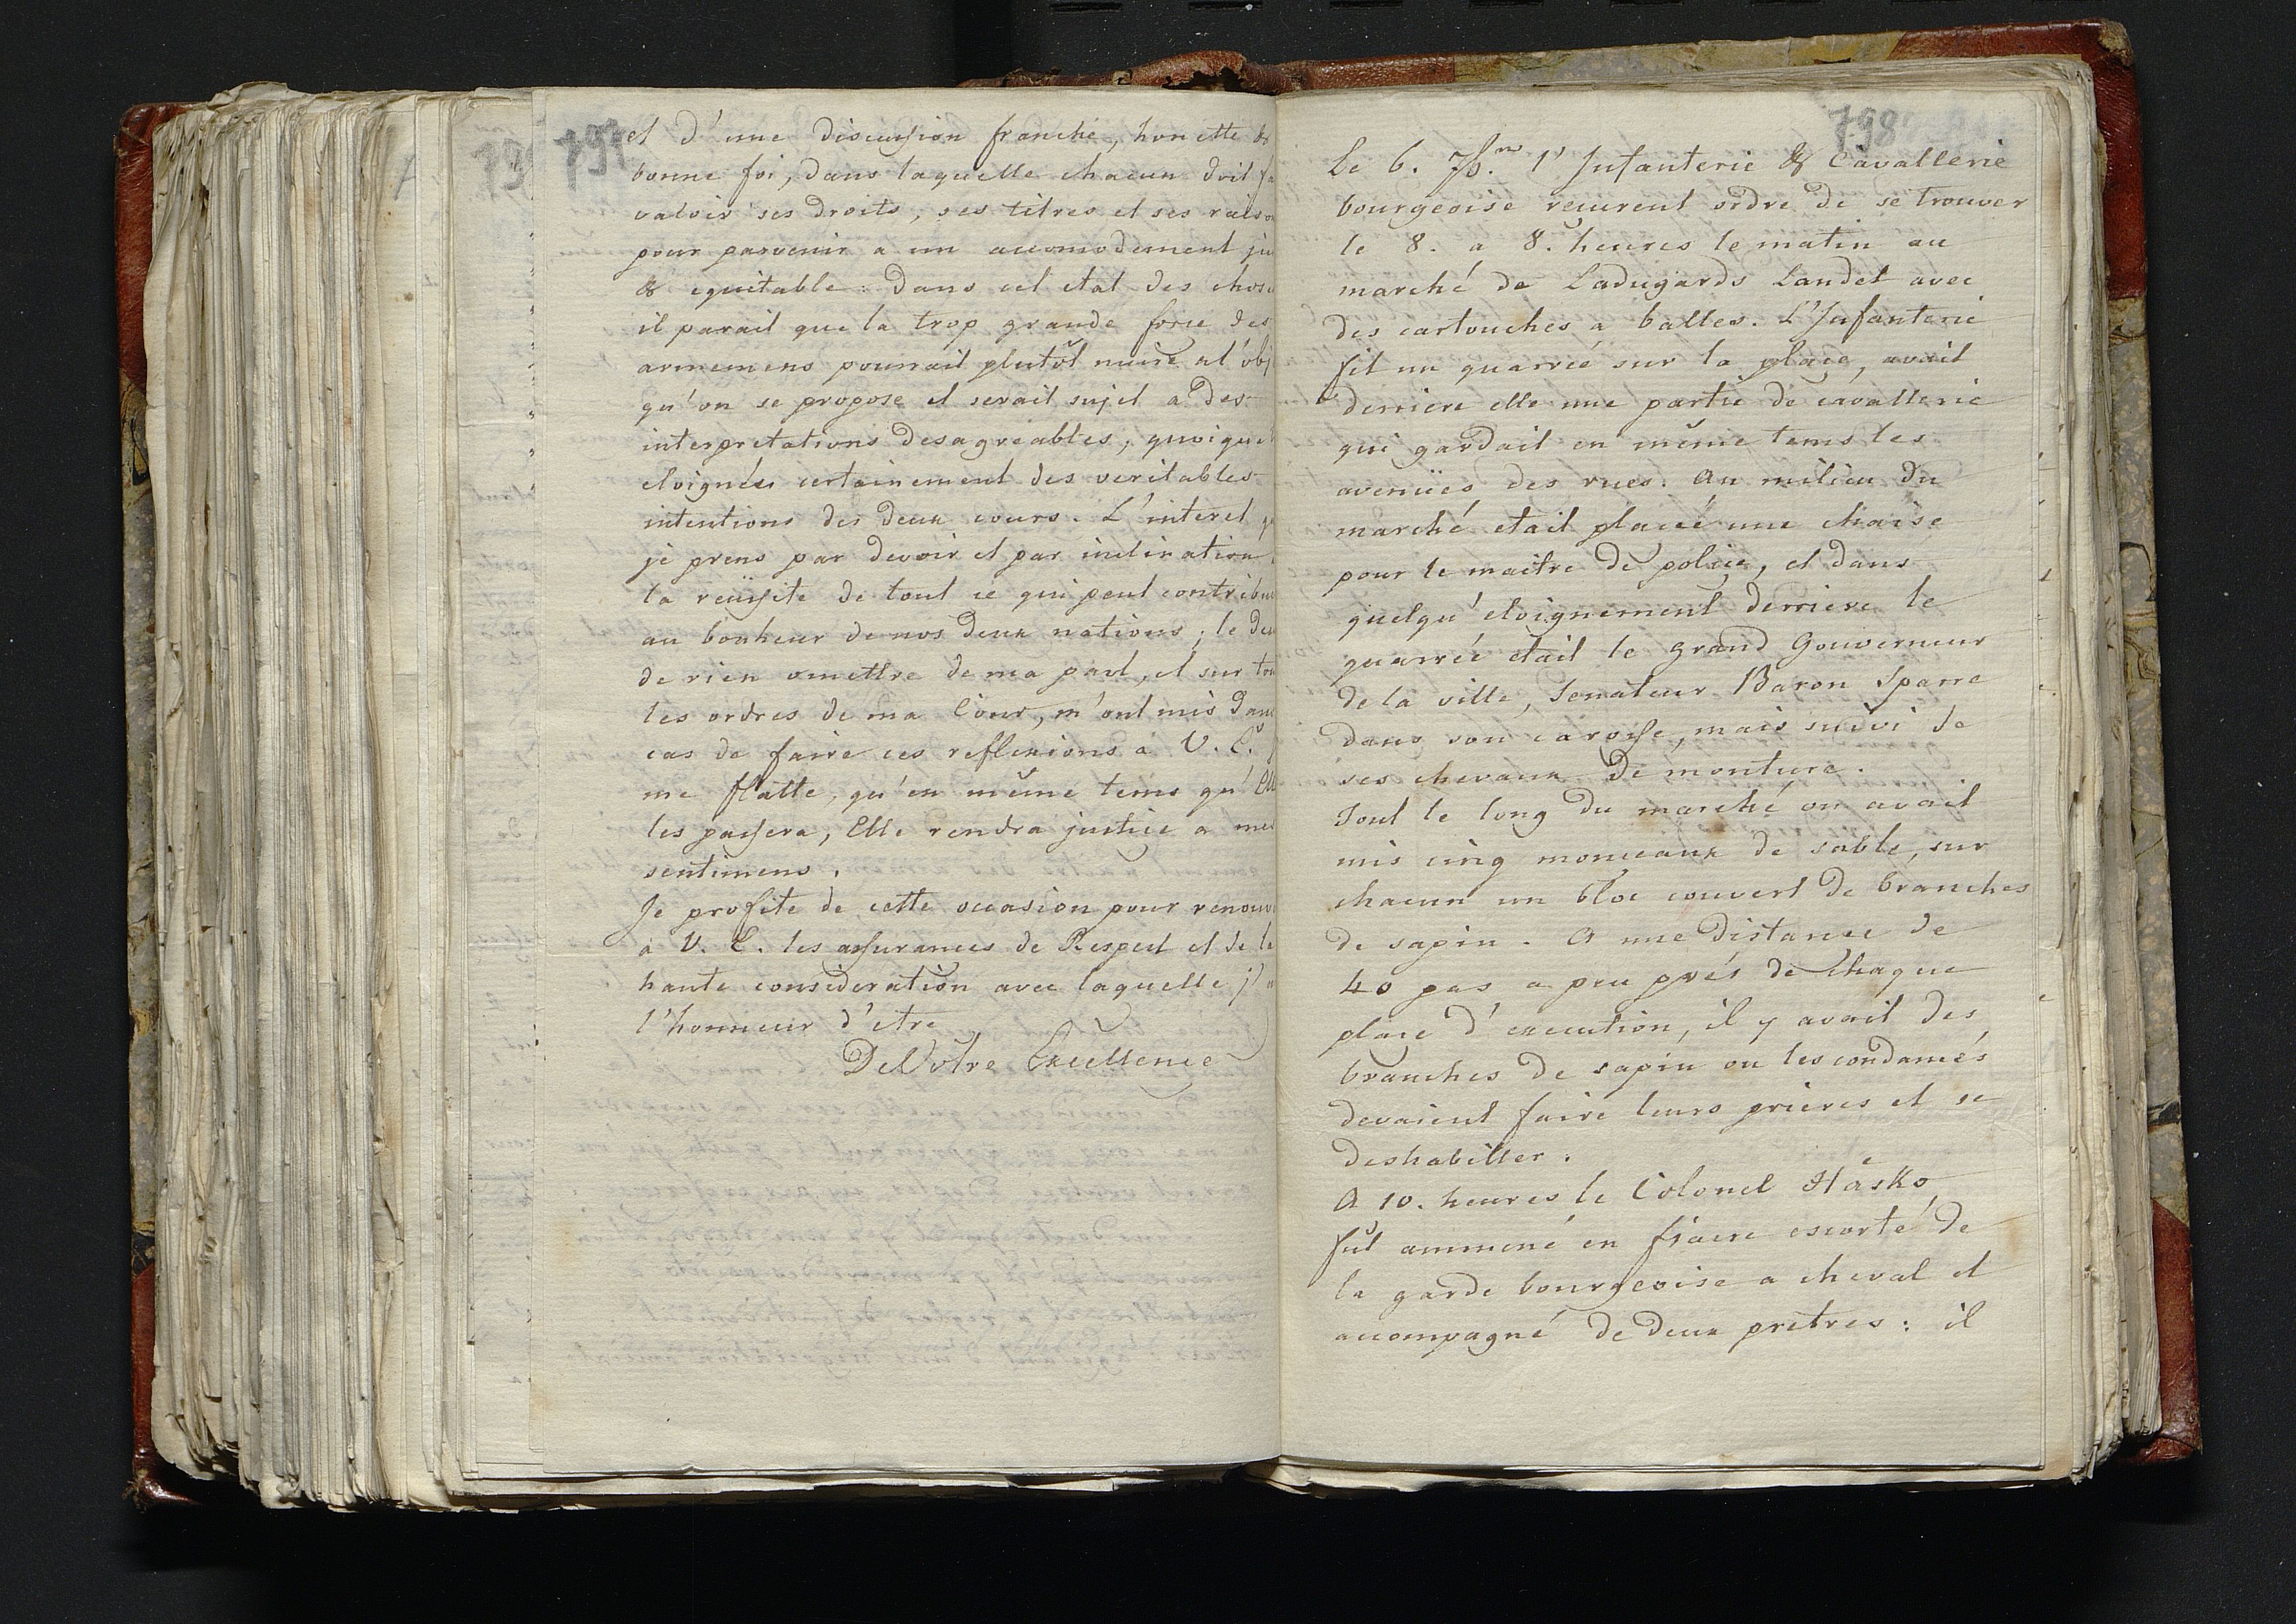 797
et d'une discussion franche, honette &
bonne foi, dans laquelle chacun doit fa
valoir ses droits, ses titres et ses raiso
pour parvenir a un accomodement ju
& equitable: Dans cet etat des chose
il parait que la trop grande force des
armemens pourrait plutôt nuire a l'obj
qu'on se propose et serait sujet a des
interpretations desagreables, quoique
eloignées certainement des veritables
intentions des deux cours. L'interet q
je prens par devoir et par inclination
la reüssite de tout ce qui peut contribue
au bonheur de nos deux nations; le des
de rien omettre de ma part, et sur tou
les ordres de ma Cour, m'ont mis dans
cas de faire ces reflexions à V. E.
me flatte, qu'en même tems qu'Elle
les passera, Elle rendra justice a mes
sentimens.
Je profite de cette occasion pour renouve
à V. E. les assurances de Respect et de la
haute consideration avec laquelle j'a
l'honneur d'etre
De Vôtre Excellence
798
Le 6. 7b.re l'Infanterie & Cavallerie
bourgeoise reçurent ordre de se trouver
le 8. a 8. heures le matin au
marché de Ladugards Landet avec
des cartouches a balles. L'Infanterie
fit un quarrée sur la place, avait
derriere elle une partie de cavallerie
qui gardait en même tems les
avenües des rues. Au milieu du
marché etait placé une chaise
pour le maitre de police, et dans
quelqu'eloignement derriere le
quarrée etait le grand Gouverneur
de la ville, Senateur Baron Sparre
dans son carosse, mais suivi de
ses chevaux de monture.
Tout le long du marché on avait
mis cinq monceaux de sable, sur
chacun un bloc couvert de branches
de sapin. A une distance de
40 pas a peu prés de chaque
place d'execution, il y avait des
branches de sapin ou les condamés
devaient faire leurs prieres et se
deshabiller.
A 10. heures le Colonel Hästko
fut ammené en fiacre escorté de
la garde bourgeoise a cheval et
accompagné de deux prêtres: il